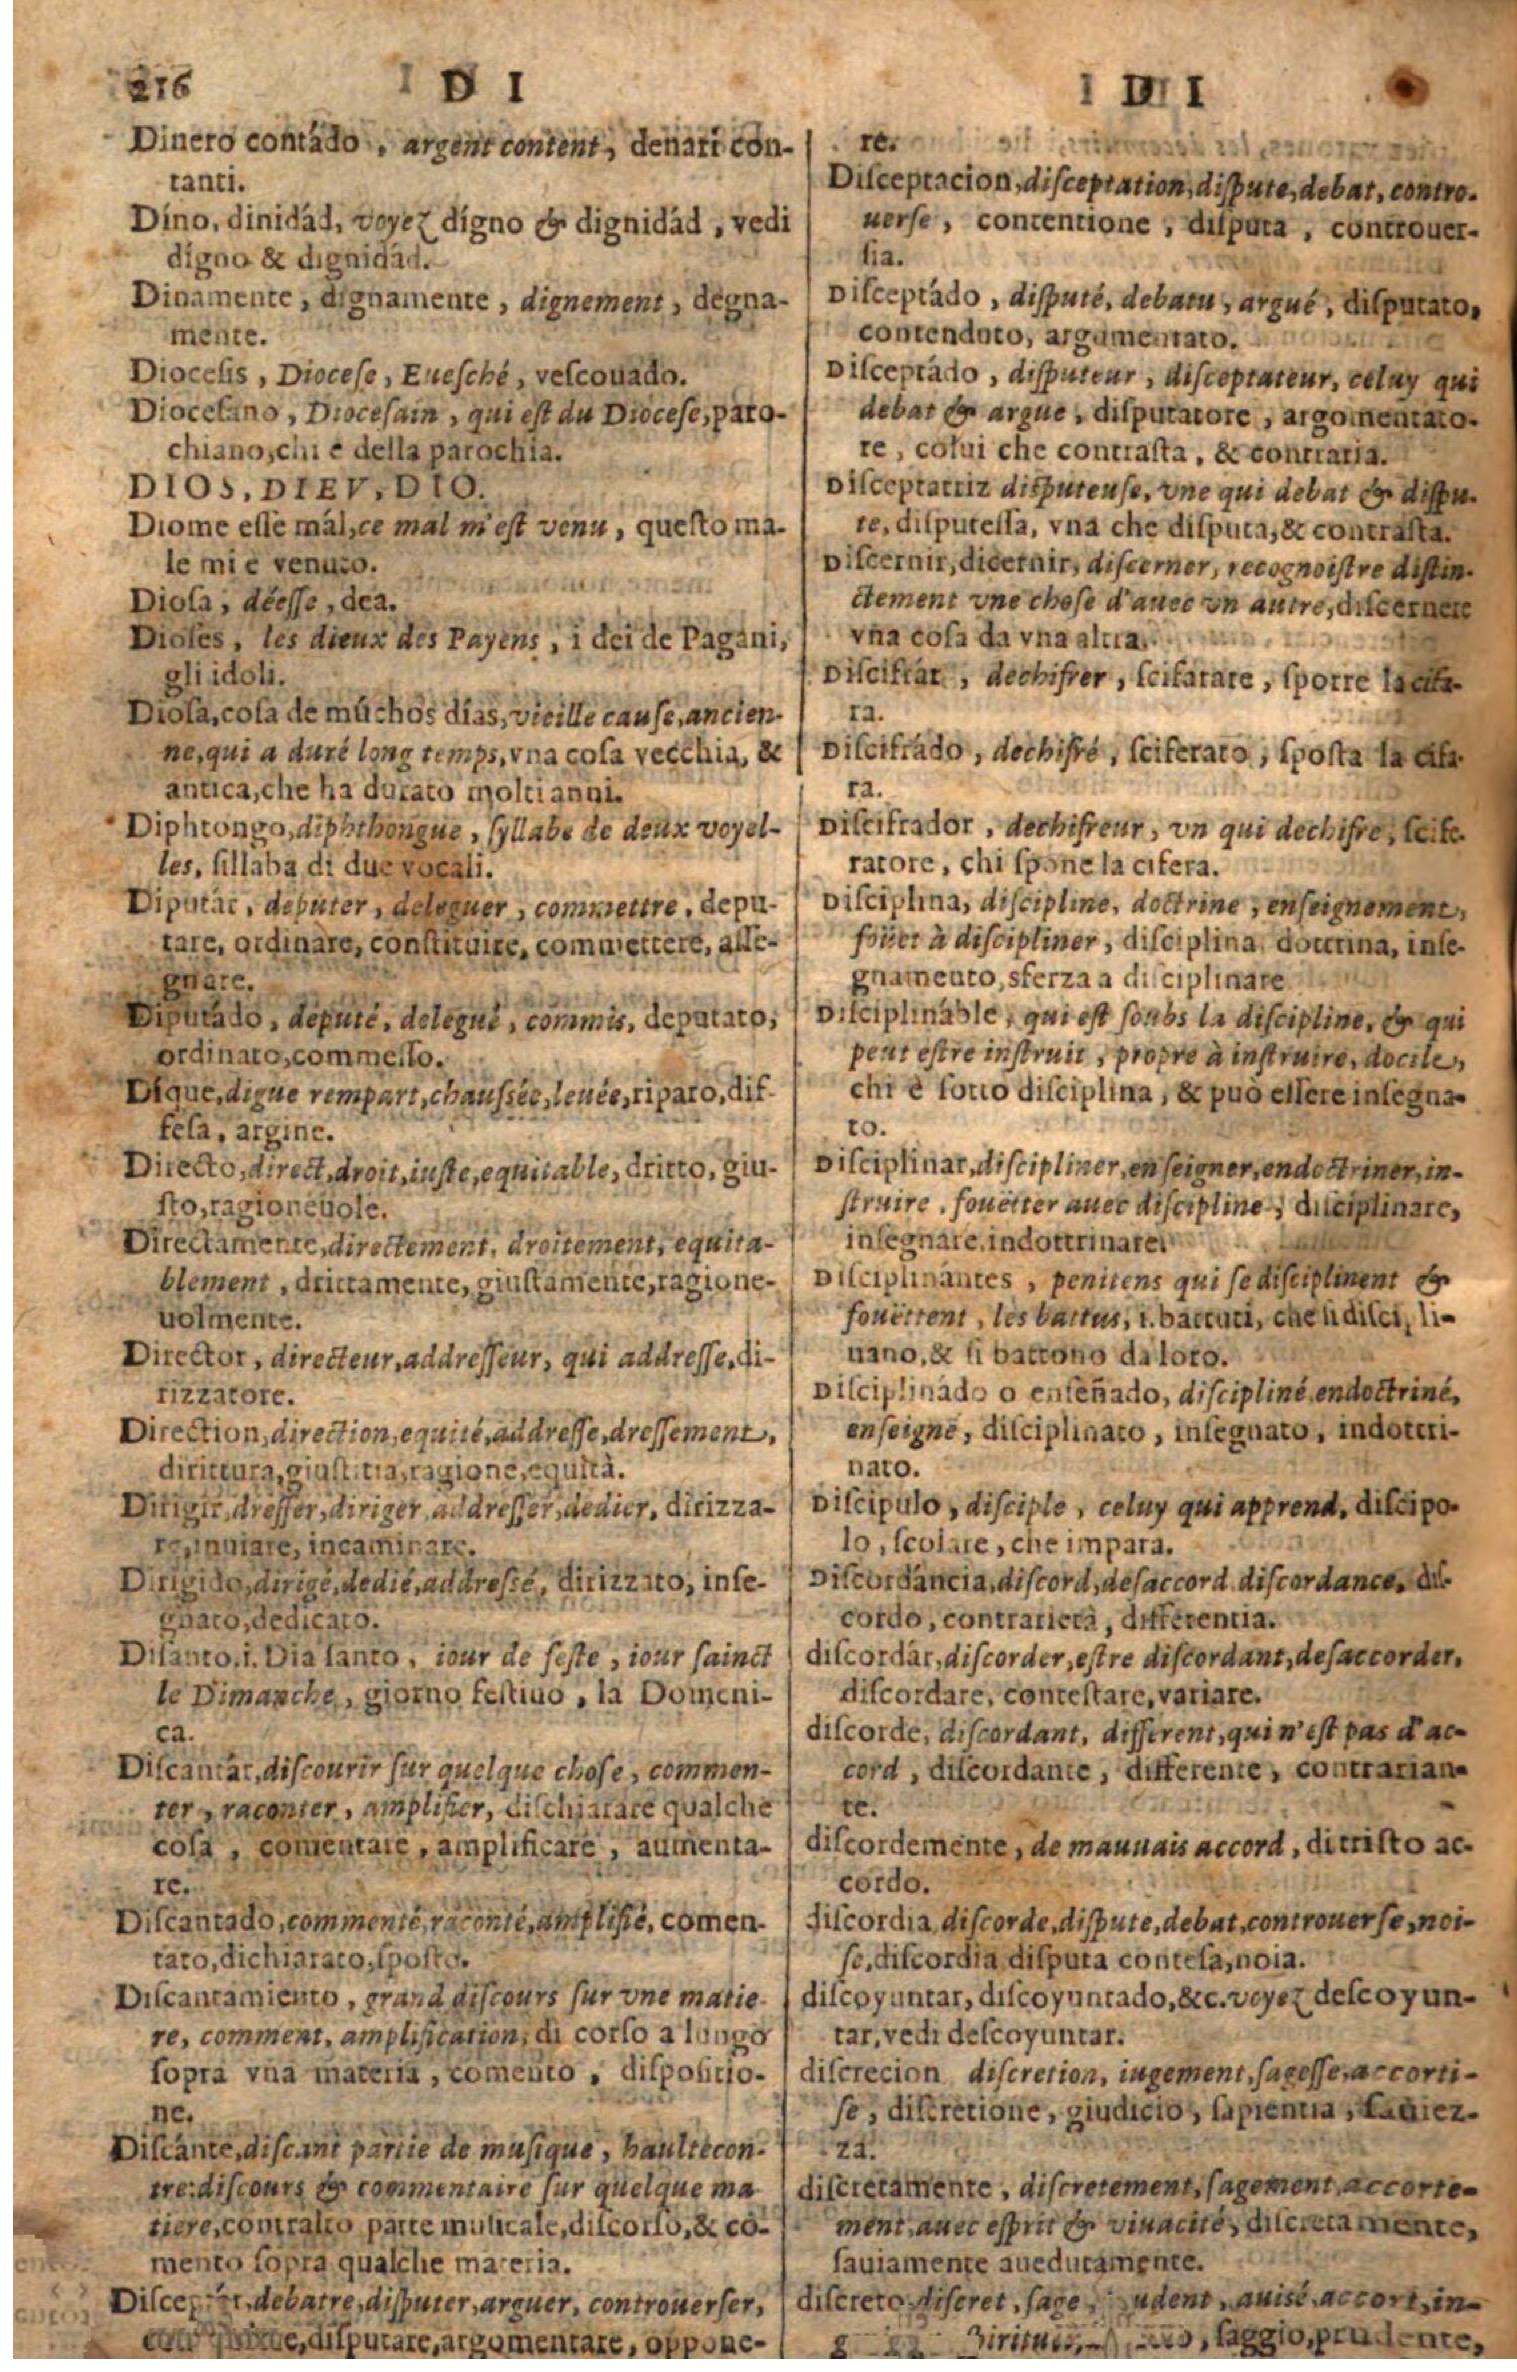 216 D I
Dinero contádo, argent content, denari con-
tanti.
Díno, dinidád, voyez dígno & dignidád, vedi
dígno & dignidád.
Dinamente, dignamente, dignement, degna-
mente.
Diocesis, Diocese, Euesché, vescouado.
Diocesano, Diocesain, qui est du Diocese, paro-
chiano, chi e della parochia.
DIOS, DIEV, DIO.
Diome esse mál, ce mal m'est venu, questo ma-
le mi e venuto.
Diosa, déesse, dea.
Dioses, les dieux des Payens, i dei de Pagani,
gli idoli.
Diosa, cosa de múchos días, vieille cause, ancien-
ne, qui a duré long temps, vna cosa vecchia, &
antica, che ha durato molti anni.
Diphtongo, diphthongue, syllabe de deux voyel-
les, sillaba di due vocali.
Diputár, deputer, deleguer, commettre, depu-
tare, ordinare, constituire, commettere, asse-
gnare.
Diputádo, deputé, delegué, commis, deputato,
ordinato, commesso.
Dique, digue rempart, chaussée, leuée, riparo, dif-
fesa, argine.
Directo, direct, droit, iuste, equitable, dritto, giu-
sto, ragioneuole.
Directamente, directement, droitement, equita-
blement, drittamente, giustamente, ragione-
uolmente.
Director, directeur, addresseur, qui addresse, di-
rizzatore.
Direction, direction, equité, addresse, dressement,
dirittura, giustitia, ragione, equità.
Dirigir, dresser, diriger, addresser, dedier, dirizza-
re, inuiare, incaminare.
Dirigido, dirigé, dedié, addressé, dirizzato, inse-
gnato, dedicato.
Disanto. i. Dia santo, iour de feste, iour sainct
le Dimanche, giorno festiuo, la Domeni-
ca.
Discantár, discourir sur quelque chose, commen-
ter, raconter, amplifier, dischiarare qualche
cosa, comentare, amplificare, aumenta-
re.
Discantado, commenté, raconté, amplifié, comen-
tato, dichiarato, sposto.
Discantamiento, grand discours sur vne matie-
re, comment, amplification, di corso a lungo
sopra vna materia, comento, dispositio-
ne.
Discánte, discant partie de musique, haultecon-
tre: discours & commentaire sur quelque ma
tiere, contralto parte musicale, discorso, & co-
mento sopra qualche materia.
debatre, disputer, arguer, controuerser,
disputare, argomentare, oppone-
D I
re.
Disceptacion, disceptation, dispute, debat, contro-
uerse, contentione, disputa, controuer-
sia.
Disceptádo, disputé, debatu, argué, disputato,
contenduto, argumentato.
Disceptádo, disputeur, disceptateur, celuy qui
debat & argue, disputatore, argomentato-
re, colui che contrasta, & contraria.
Disceptatriz disputeuse, vne qui debat & dispu-
te, disputessa, vna che disputa, & contrasta.
Discernir, dicernir, discerner, recognoistre distin-
ctement vne chose d'auec vn autre, discernere
vna cosa da vna altra.
Discifrár, dechifrer, scifarare, sporre la cifa-
ra.
Discifrádo, dechifré, sciferato, sposta la cifa-
ra.
Discifrador, dechifreur, vn qui dechifre, scife-
ratore, chi spone la cifera.
Disciplina, discipline, doctrine, enseignement,
foüet à discipliner, disciplina, dottrina, inse-
gnamento, sferza a disciplinare
Disciplináble, qui est soubs la discipline, & qui
peut estre instruit, propre à instruire, docile,
chi è sotto disciplina, & può essere insegna-
to.
Disciplinar, discipliner, enseigner, endoctriner, in-
struire, fouëtter auec discipline, disciplinare,
insegnare, indottrinare.
Disciplinántes, penitens qui se disciplinent &
fouëttent, les battus, i. battuti, che si disci, li-
nano, & si battono da loro.
Disciplinádo o enseñado, discipliné endoctriné,
enseigné, disciplinato, insegnato, indottri-
nato.
Discipulo, disciple, celuy qui apprend, discipo-
lo, scolare, che impara.
Discordáncia, discord, desaccord discordance, dis-
cordo, contrarietà, differentia.
discordár, discorder, estre discordant, desaccorder,
discordare, contestare, variare.
discorde, discordant, different, qui n'est pas d'ac-
cord, discordante, differente, contrarian-
te.
discordemente, de mauuais accord, di tristo ac-
cordo.
discordia discorde, dispute, debat, controuerse, noi-
se, discordia disputa contesa, noia.
discoyuntar, discoyuntado, &c. voyez descoyun-
tar, vedi descoyuntar.
discrecion discretion, iugement, sagesse, accorti-
se, discretione, giudicio, sapientia, sauiez-
za.
discretamente, discretement, sagement, accorte-
ment, auec esprit & viuacité, discretamente,
sauiamente auedutamente.
discreto discret, sage, auisé, accort, in-
saggio, prudente,